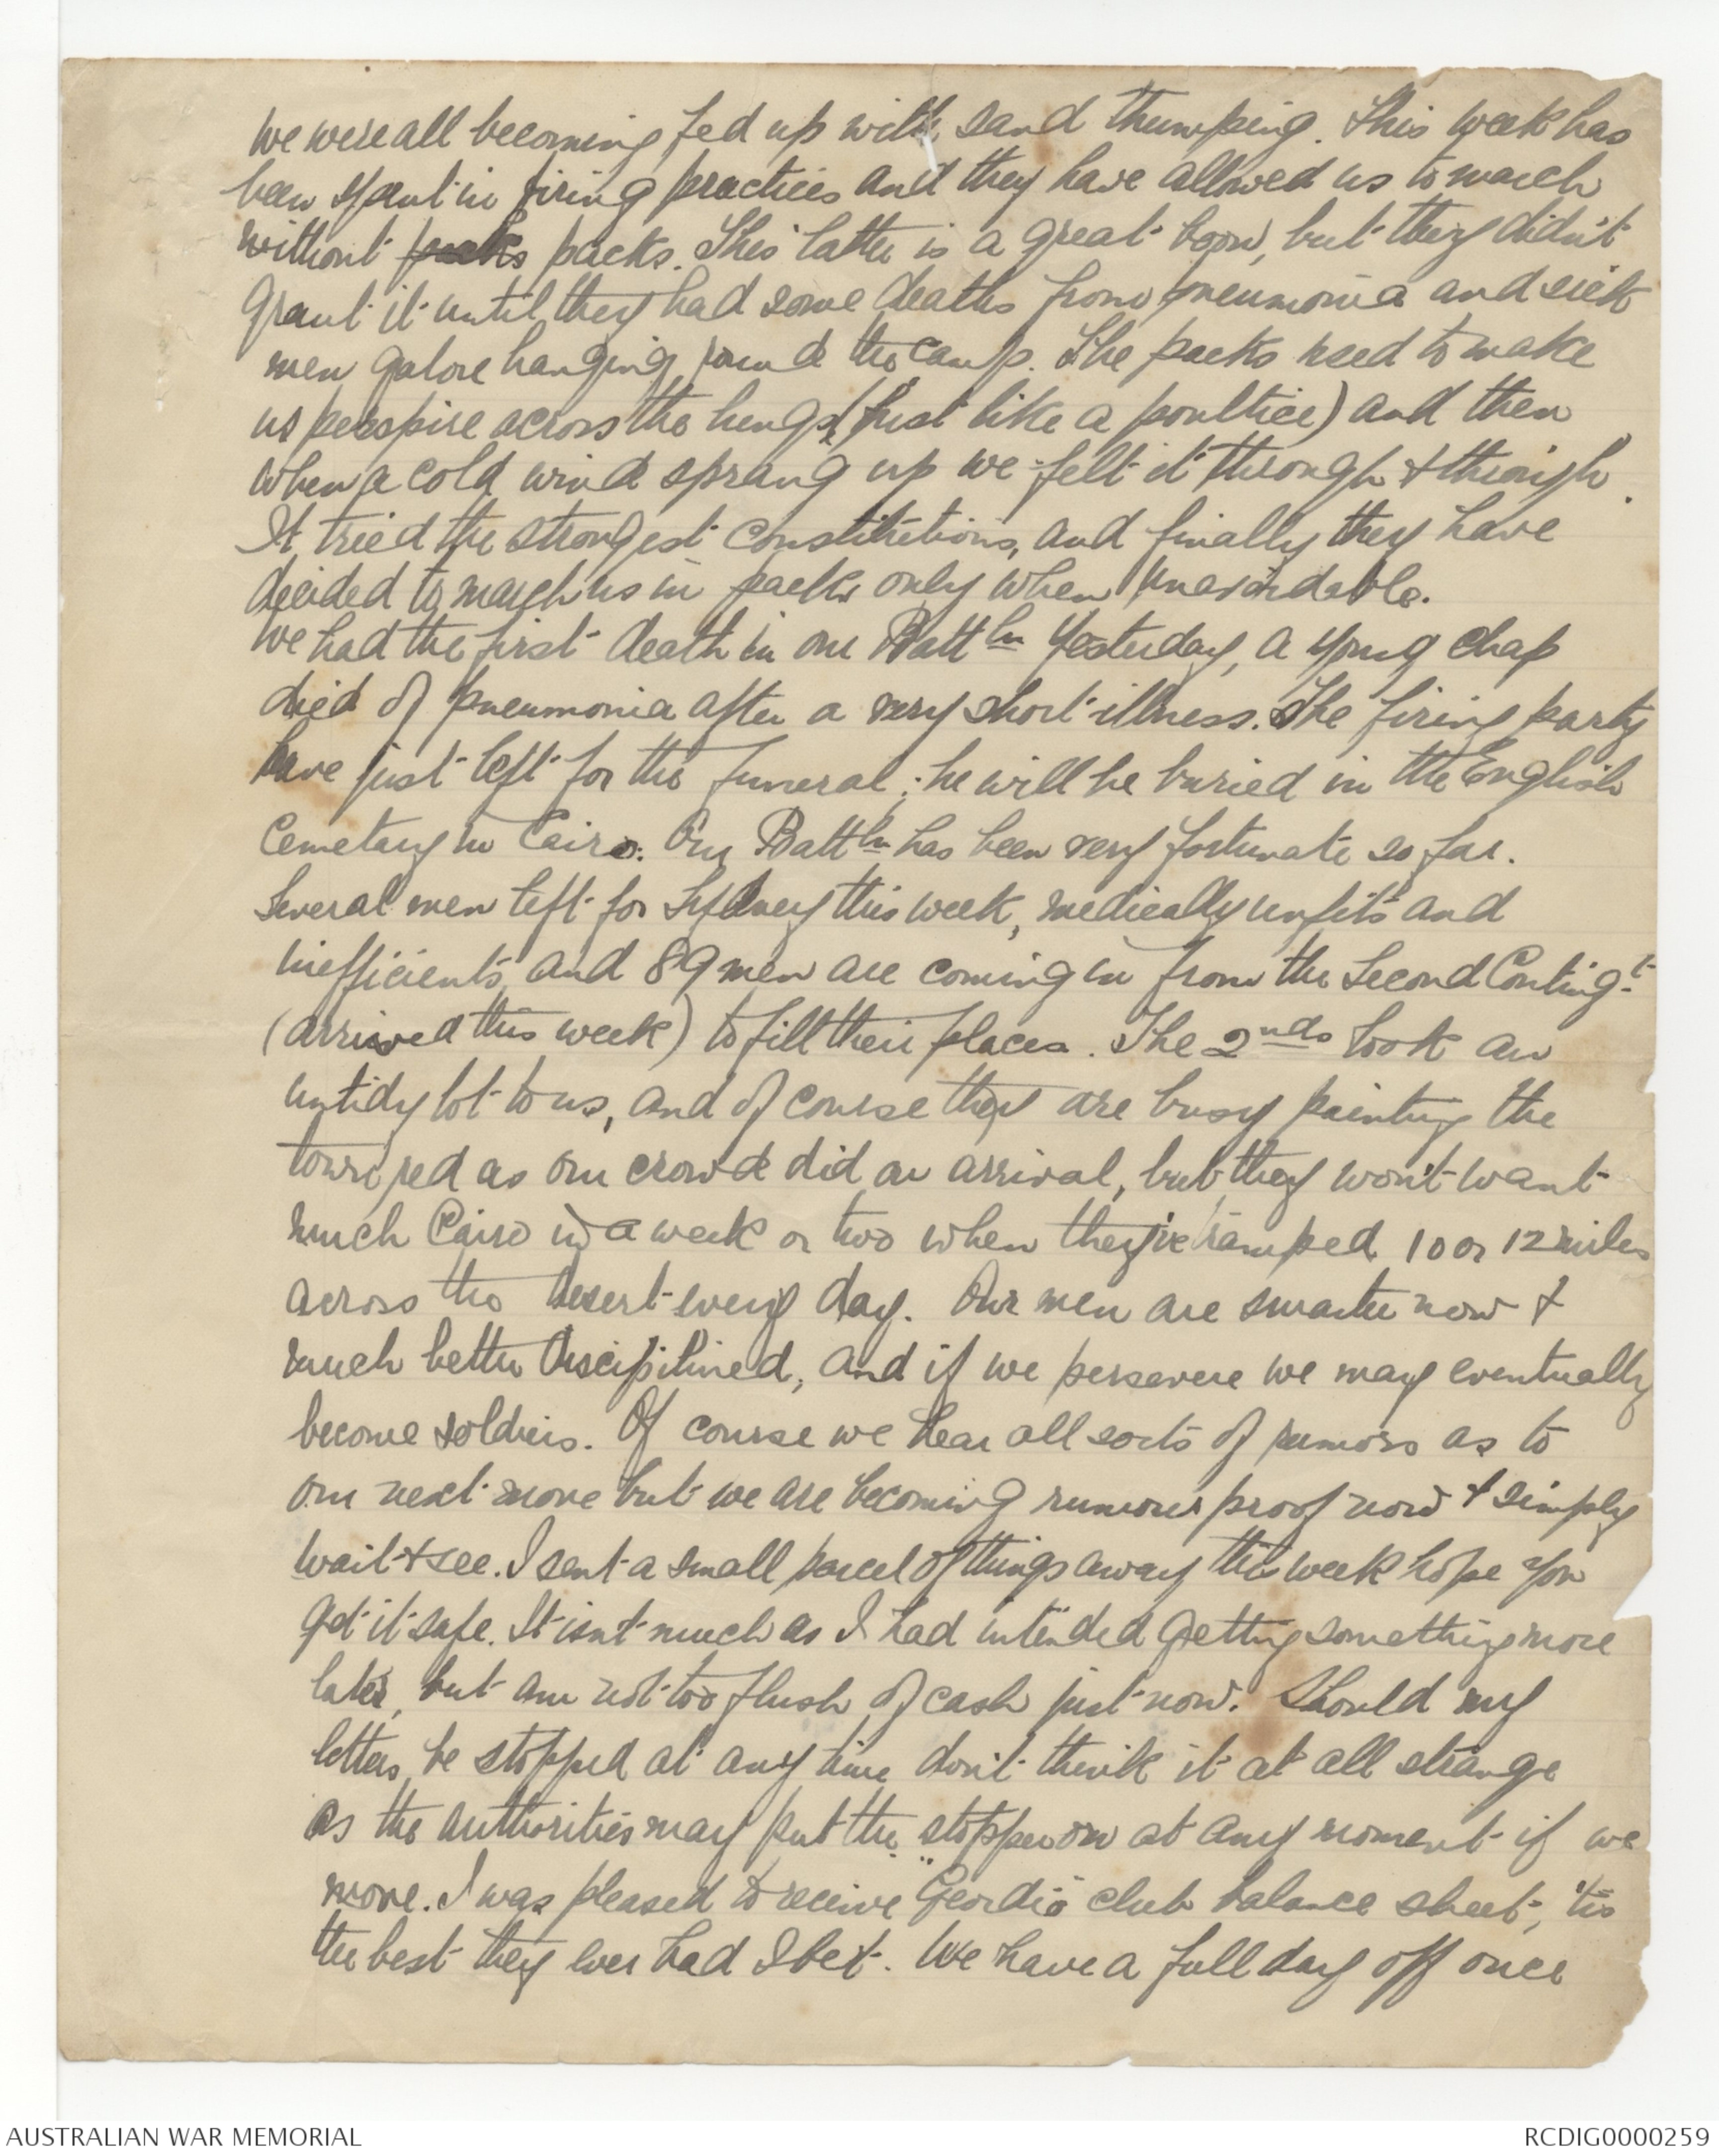 we were all becoming fed up with sand thumping. This week has
been spent in firing practices and they have allowed us to march
without packs packs. This latter is a great boon, but they didn't
grant it until they had some deaths from pneumonia and sick
men galore hanging round the camp. The packs used to make
us perspire across the lungs (just like a poultice) and then
when a cold wind sprang up we felt it through & through.
It tried the strongest constitutions, and finally they have
decided to march us in packs only when unavoidable.
We had the first death in our Battln yesterday, a young chap
died of pneumonia after a very short illness. The firing party
have just left for the funeral; he will be buried in the English
Cemetary in Cairo. Our Battln has been very fortunate so far.
Several men left for Sydney this week, medically unfits and
inefficients, and 89 men are coming in from the Second Conting.t
(arrived this week) to fill their places. The 2nds look an
untidy lot to us, and of course they are busy painting the
town red as our crowd did on arrival, but they won't want
much Cairo in a week or two when they've tramped 10 or 12 miles
across the desert every day. Our men are smarter now &
much better disciplined, and if we persevere we may eventually
become soldiers. Of course we hear all sorts of rumors as to
our next move but we are becoming rumour proof now & simply
wait & see. I sent a small parcel of things away this week hope you
get it safe. It isn't much as I had intended getting something more
later, but am not too flush of cash just now. Should my
letters be stopped at any time don't think it at all strange
as the authorities may put the stopper on at any moment if we
move. I was pleased to receive "Geordie" club balance sheet, 'tis
the best they ever had I bet. We have a full day off once
AUSTRALIAN WAR MEMORIAL
RCDIG0000259